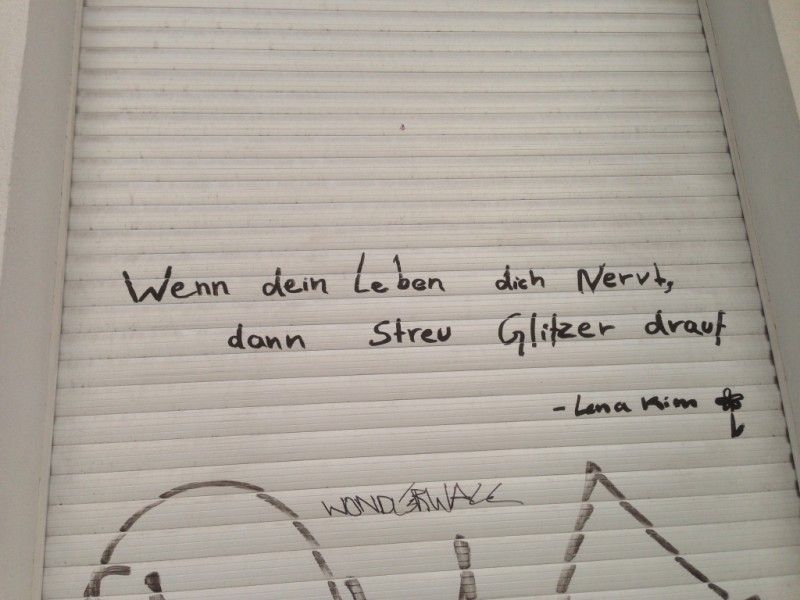 Wenn dein Leben dich Nervt,
dann Streu Glitzer drauf
- Lena Kim
WONDERWALL